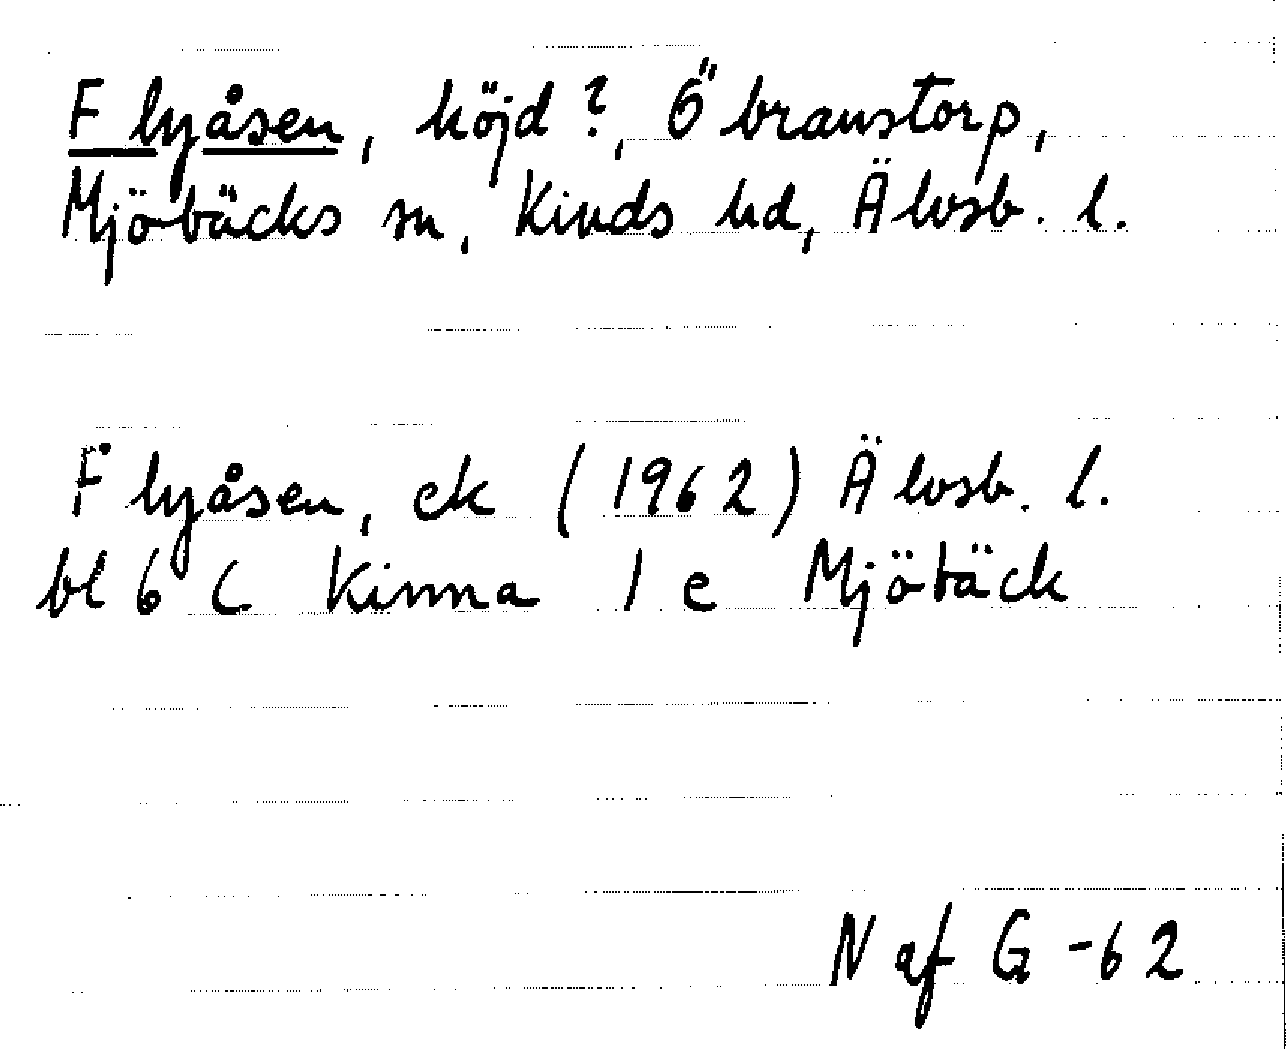 Flyåsen, höjd?, Öbramstorp,
Mjöbäcks sn, Kinds hd, Älvsb. l.
Flyåsen, ek (1962) Älvsb. l.
bl 6 C Kinna 1 e Mjöbäck
N af G -62